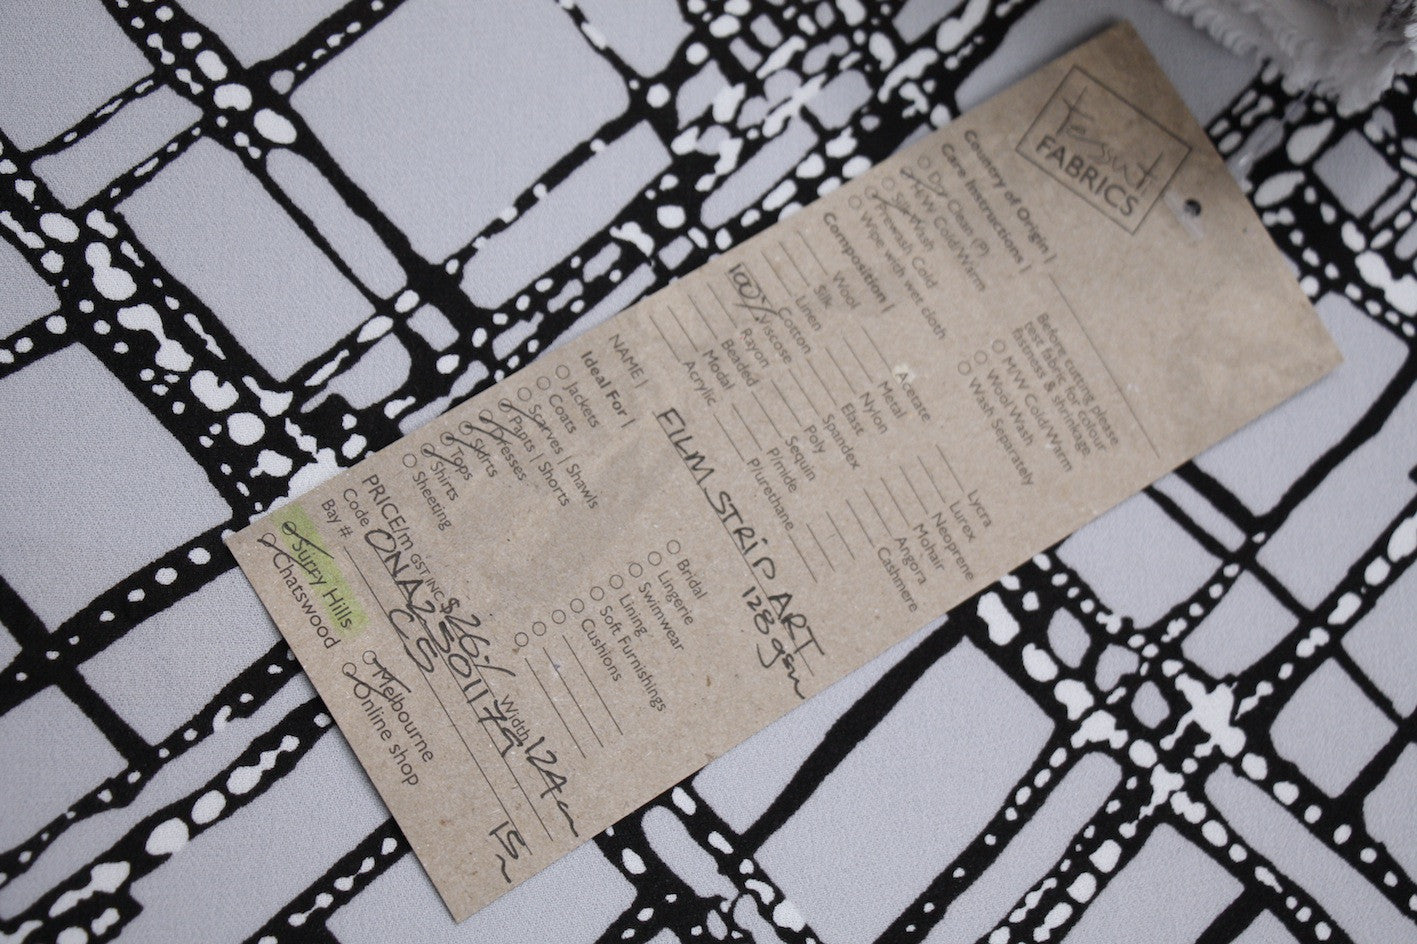 tessuti
FABRICS
Country of Origin |
Care Instructions |
Dry Clean (P)
H/W Cold/Warm
Silk Wash
Prewash Cold
Wipe with wet cloth
Before cutting please
test fabric for colour
fastness & shrinkage.
M/W Cold/Warm
Wool Wash
Wash Separately
Composition |
Wool
Silk
Linen
Cotton
100% Viscose
Rayon
Beaded
Modal
Acrylic
Acetate
Metal
Nylon
Elast
Spandex
Poly
Sequin
P/mide
Plurethane
Lycra
Lurex
Neoprene
Mohair
Angora
Cashmere
NAME | FILM STRIP ART
128gsm
Ideal For |
Jackets
Coats
Scarves | Shawls
Pants | Shorts
Dresses
Skirts
Tops
Shirts
Sheeting
Bridal
Lingerie
Swimwear
Lining
Soft Furnishings
Cushions
PRICE/m GST INC $26./ Width 124cm
Code ONA2301179
Bay # CS 15m
Surry Hills
Chatswood
Melbourne
Online shop